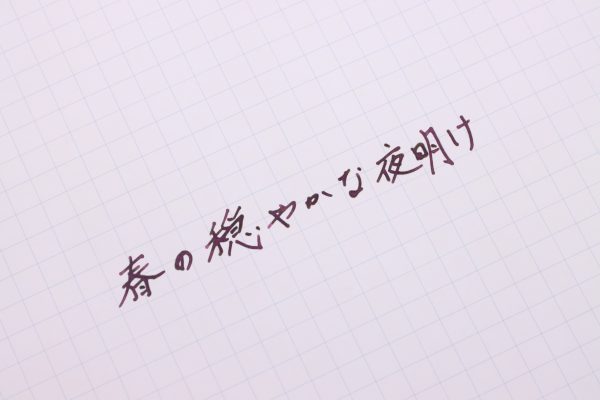 春の穏やかな夜明け